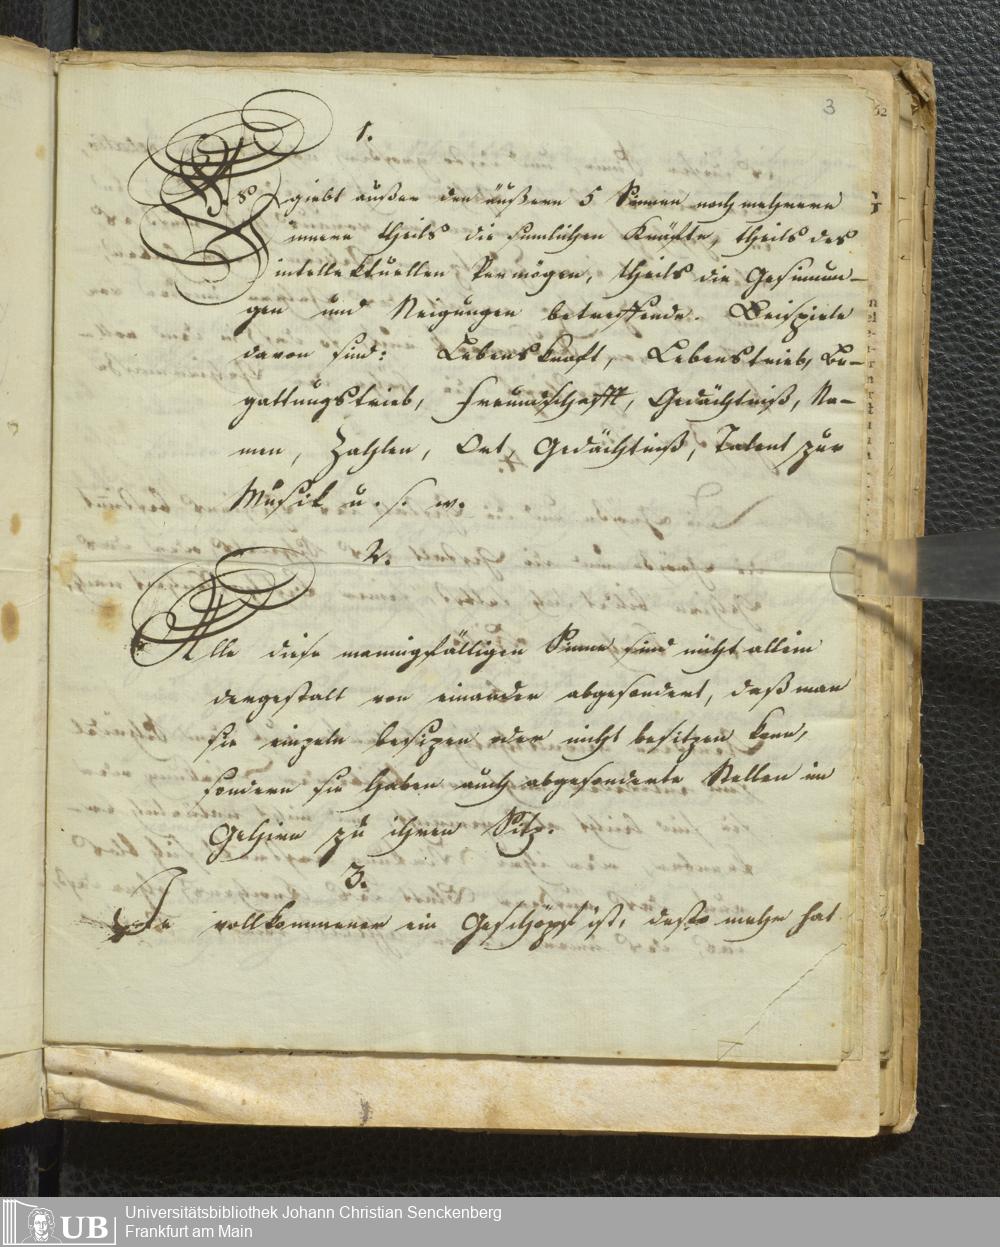 3
52
1.
Es giebt außer den äußern 5 Sinnen noch mehrere
innere theils die sinnlichen Kräfte, theils das
intellektuellen Vermögen, theils die Gesinnun-
gen und Neigungen betreffende. Beispiele
davon sind: Lebenskraft, Lebenstrieb, Be-
gattungstrieb, Freundschafft, Gedächtniß, Na-
men, Zahlen, Ort, Gedächtniß, Talent zur
Musik u. s. w.
2.
Alle diese mannigfältigen Sinne sind nicht allein
dergestalt von einander abgesondert, daß man
sie einzeln besitzen oder nicht besitzen kann,
sondern sie haben auch abgesonderte Stellen im
Gehirn zu ihrem Sitz.
3.
Je vollkommener ein Geschöpf ist, desto mehr hat
UB
Universitätsbibliothek Johann Christian Senckenberg
Frankfurt am Main